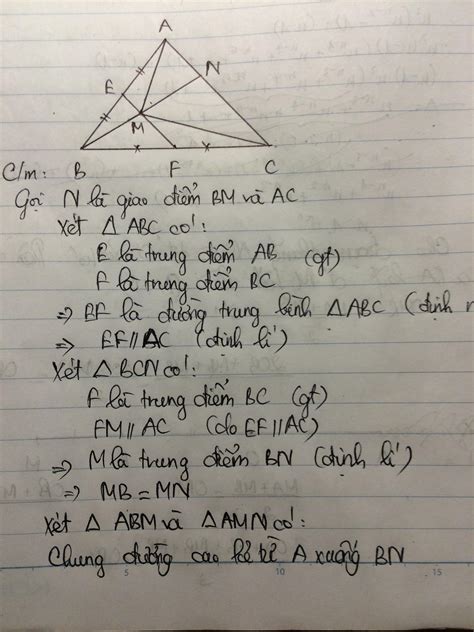 A
E
N
M
C/m: B F C
Gọi N là giao điểm BM và AC
Xét △ ABC có:
E là trung điểm AB (gt)
F là trung điểm BC
=> EF là đường trung bình △ABC (định n
=> EF // AC (định lí)
Xét △ BCN có:
F là trung điểm BC (gt)
FM // AC (do EF // AC)
=> M là trung điểm BN (định lí)
=> MB = MN
Xét △ ABM và △AMN có:
Chung đường cao kẻ từ A xuống BN
5 10 15